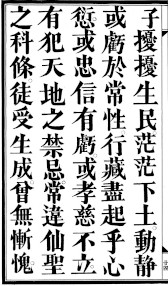 子擾擾生民茫茫下土動靜
或虧於常性行藏盡起乎心
愆或忠信有虧或孝慈不立
有犯天地之禁忌常違仙聖
之科條徒受生成曾無慚愧